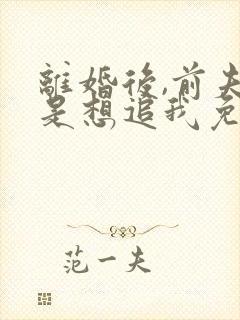 離婚後,前夫
是想追我免
范一夫